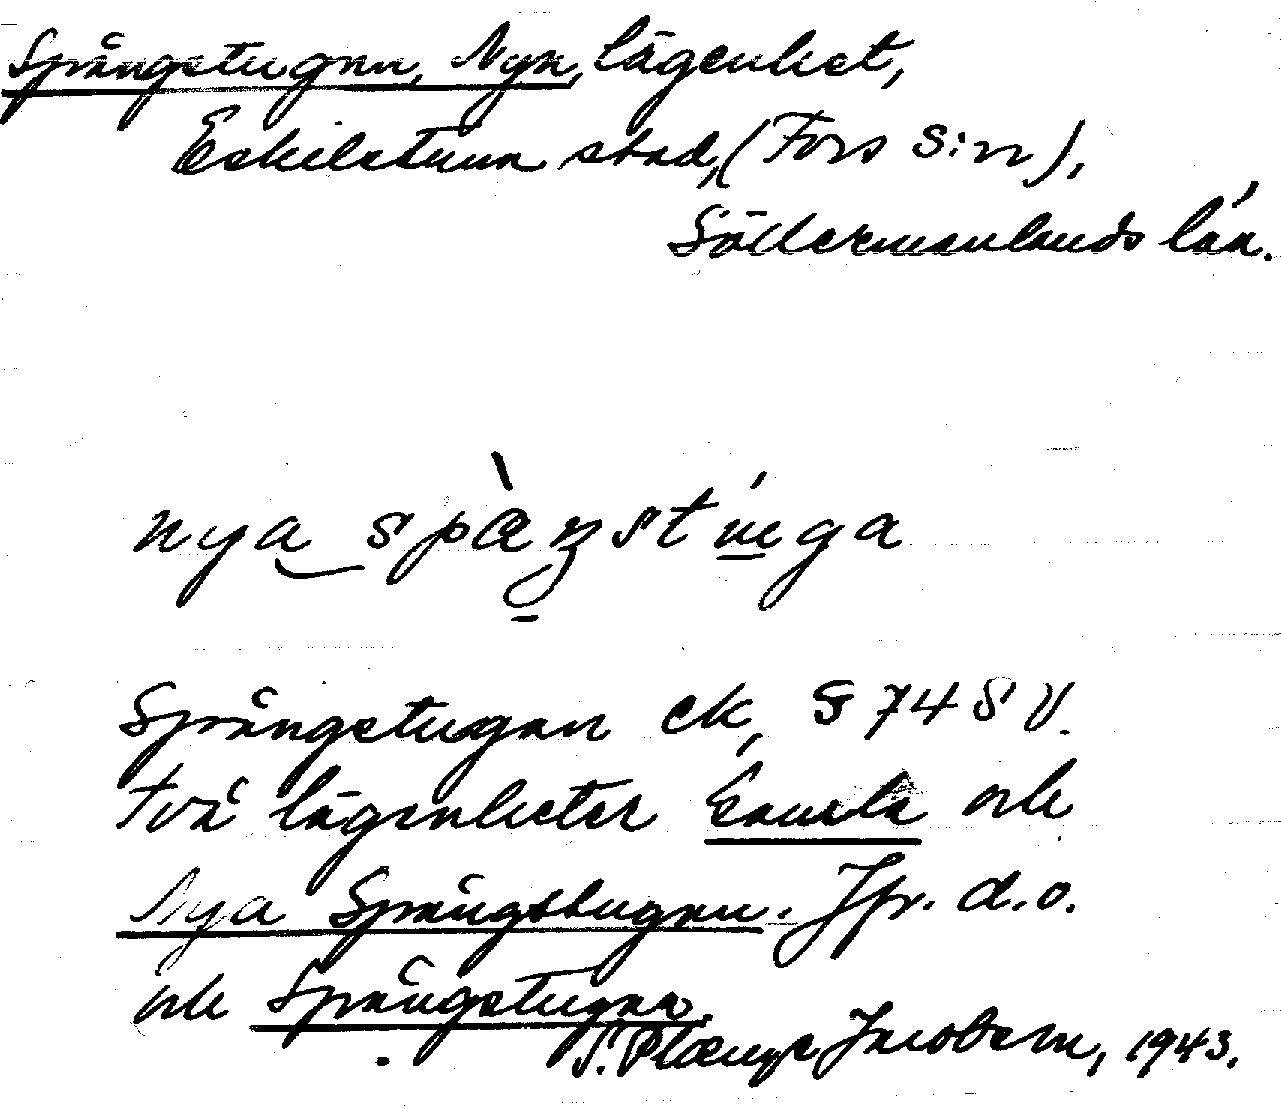 Spångstugan, Nya, lägenhet,
Eskilstuna stad, (Fors s:n),
Södermanlands län.
nya spåŋstuga
Spångstugan ek, S 74 SV.
Två lägenheter Gamla och
Nya Spångstugan. Jfr. d.o.
och Spångstugan.
Jacobson, 1943.